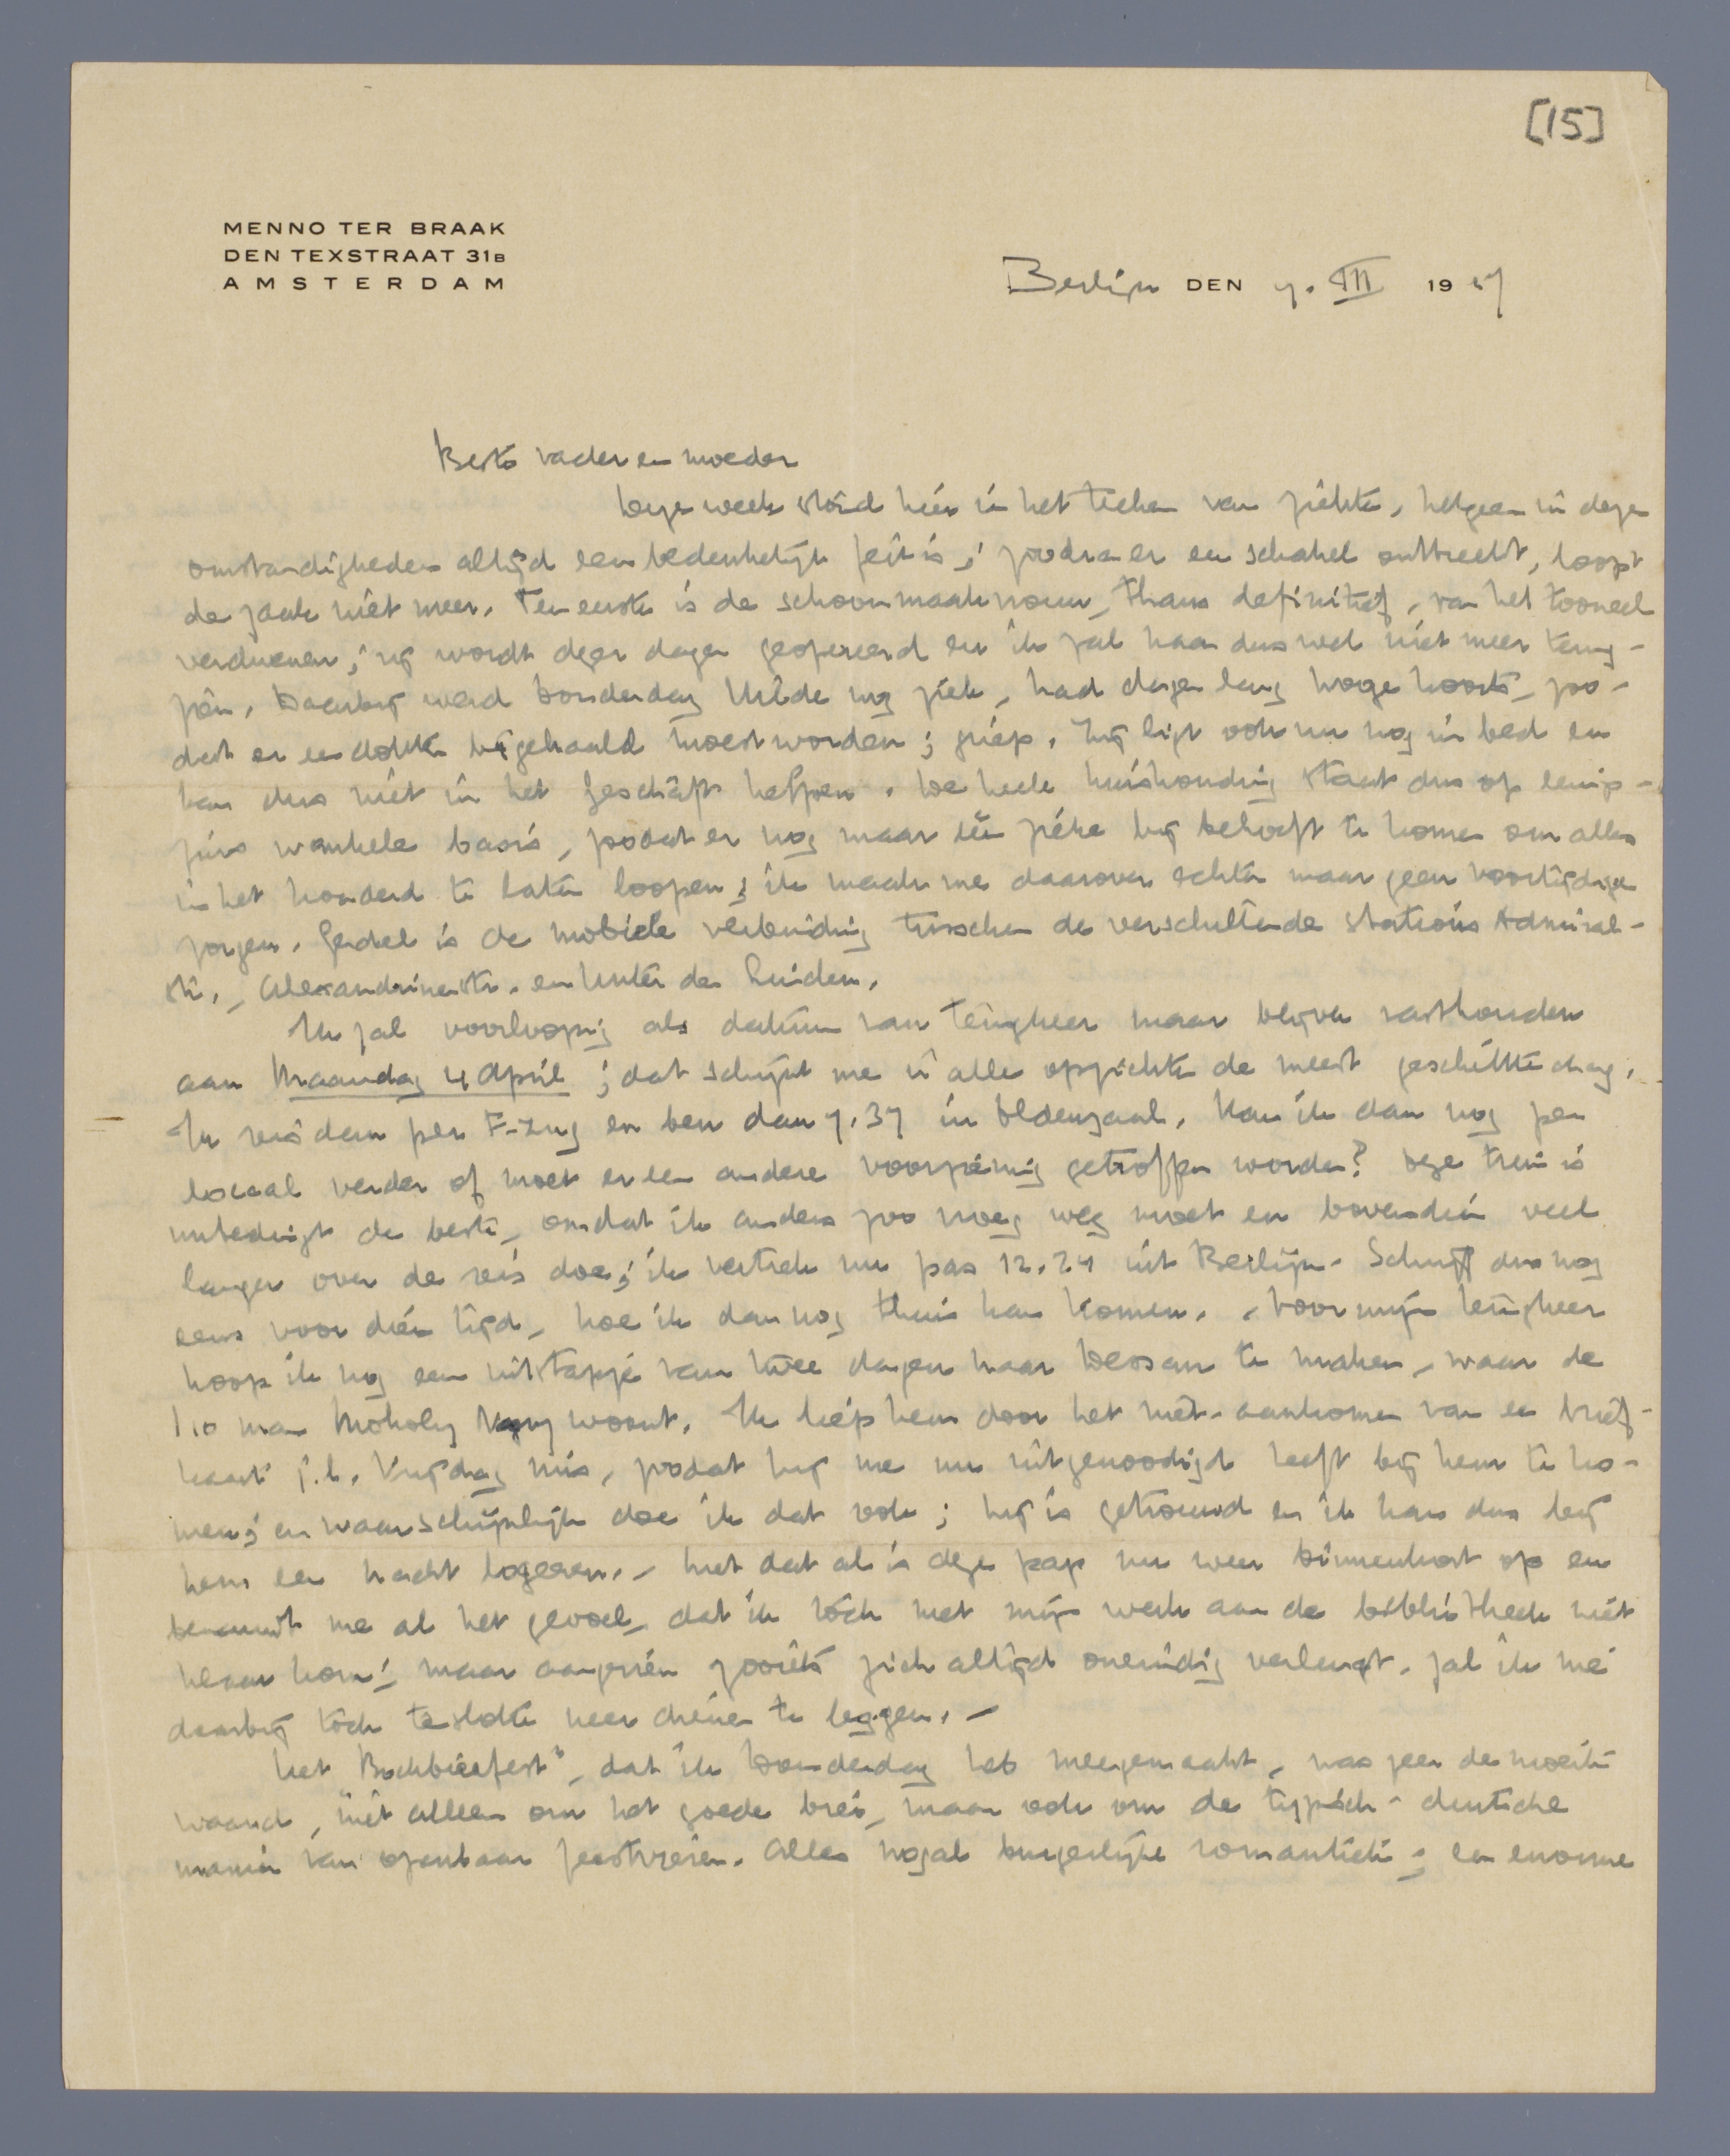 [15]
MENNO TER BRAAK
DEN TEXSTRAAT 31B
AMSTERDAM
Berlijn DEN 7. III 19 27
Beste vader en moeder
Deze week stond hier in het teeken van ziekte, hetgeen in deze
omstandigheden altijd een bedenkelijk feit is; zoodra er een schakel ontbreekt, loopt
de zaak niet meer. Ten eerste is de schoonmaakvrouw, thans definitief, van het tooneel
verdwenen; zij wordt dezer dagen geopereerd en ik zal haar dus wel niet meer terug-
zien. Daarbij werd Donderdag Hilde nog ziek, had dagen lang hooge koorts, zoo-
dat er een dokter bijgehaald moest worden; griep. Zij ligt ook nu nog in bed en
kan dus niet in het Geschäft helpen. De heele huishouding staat dus op eenigs-
zins wankele basis, zoodat er nog maar één zieke bij behoeft te komen om alles
in het honderd te laten loopen; ik maak me daarover echter maar geen voortijdige
zorgen. Gerdel is de mobiele verbinding tusschen de verschillende stations Admiral-
str., Alexandrinenstr. en Unter den Linden.
Ik zal voorloopig als datum van terugkeer maar blijven vasthouden
aan Maandag 4 April; dat schijnt me in alle opzichten de meest geschikte dag.
Ik reis dan per F-Zug en ben dan 7.37 in Oldenzaal. Kan ik dan nog per
locaal verder of moet er een andere voorziening getroffen worden? Deze trein is
unbedingt de beste, omdat ik anders zoo vroeg weg moet en bovendien veel
langer over de reis doe; ik vertrek nu pas 12.24 uit Berlijn. Schrijft dus nog
eens voor dien tijd, hoe ik dan nog thuis kan komen. - Voor mijn terugkeer
hoop ik nog een uitstapje van twee dagen naar Dessau te maken, waar de
i10 man Moholy Nagy woont. Ik liep hem door het niet-aankomen van een brief-
kaart j.l. Vrijdag mis, zoodat hij me nu uitgenoodigd heeft bij hem te ko-
men; en waarschijnlijk doe ik dat ook; hij is getrouwd en ik kan dus bij
hem een nacht logeeren. - Met dat al is deze pap nu weer binnenkort op en
bekruipt me al het gevoel, dat ik tòch met mijn werk aan de bibliotheek niet
klaar kom; maar aangezien zooiets zich altijd oneindig verlengt, zal ik me
daarbij toch tenslotte neer dienen te leggen. -
Het "Bockbierfest", dat ik Donderdag heb meegemaakt, was zeer de moeite
waard, niet alleen om het goede bier, maar ook om de typisch-duitsche
manier van openbaar feestvieren. Alles nogal burgerlijke romantiek; een enorme